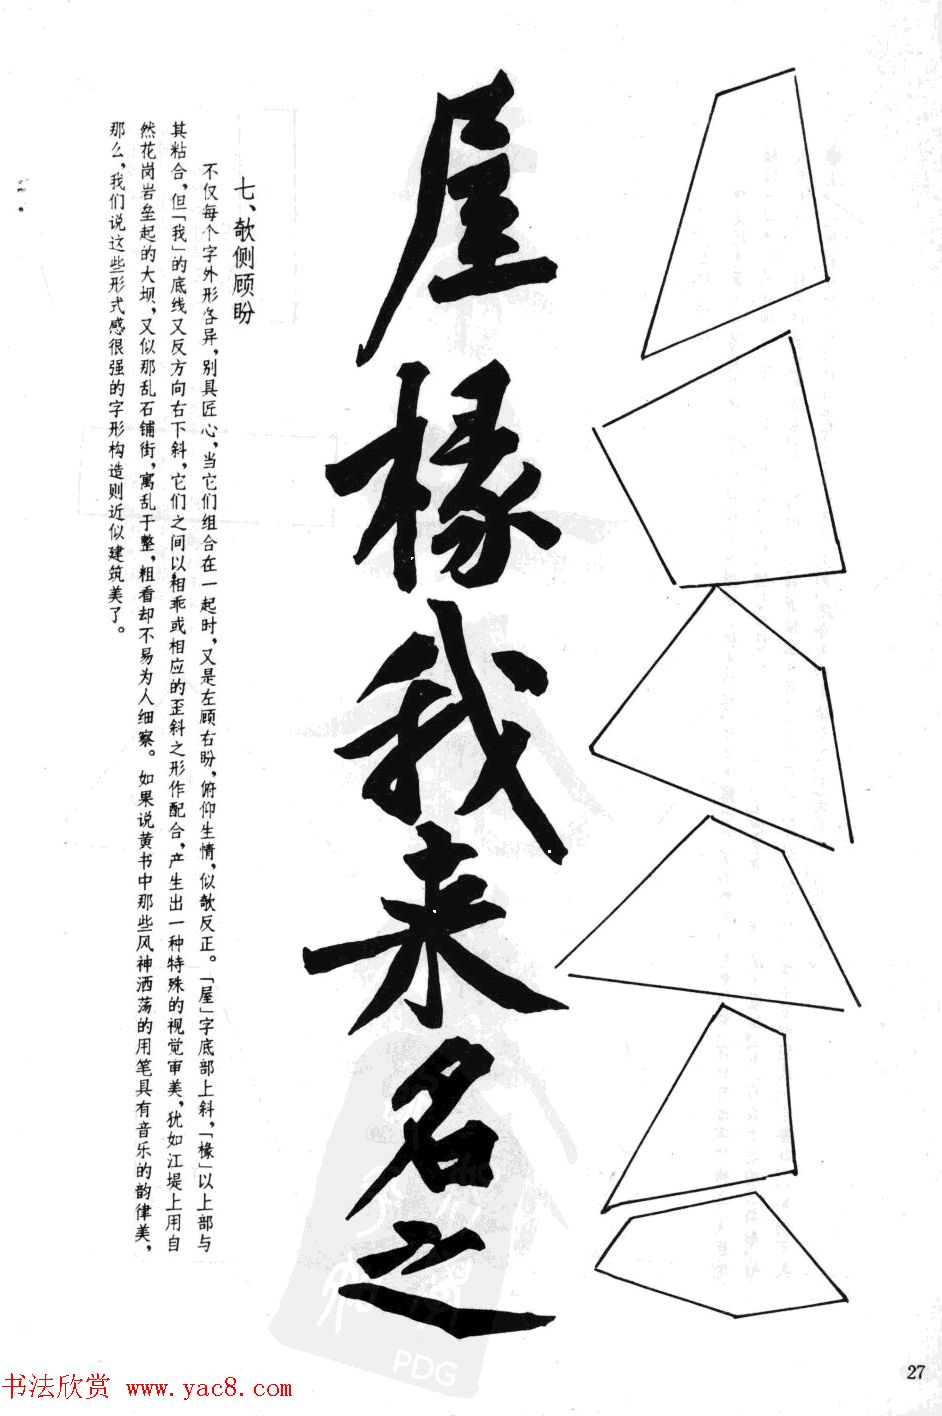 屋椽我来名之
七、欹侧顾盼
不仅每个字外形各异，别具匠心，当它们组合在一起时，又是左顾右盼，俯仰生情，似欹反正。「屋」字底部上斜，「椽」以上部与
其粘合，但「我」的底线又反方向右下斜，它们之间以相乖或相应的歪斜之形作配合，产生出一种特殊的视觉审美，犹如江堤上用自
然花岗岩垒起的大坝，又似那乱石铺街，寓乱于整，粗看却不易为人细察。如果说黄书中那些风神洒荡的用笔具有音乐的韵律美，
那么，我们说这些形式感很强的字形构造则近似建筑美了。
PDG
27
书法欣赏 www.yac8.com